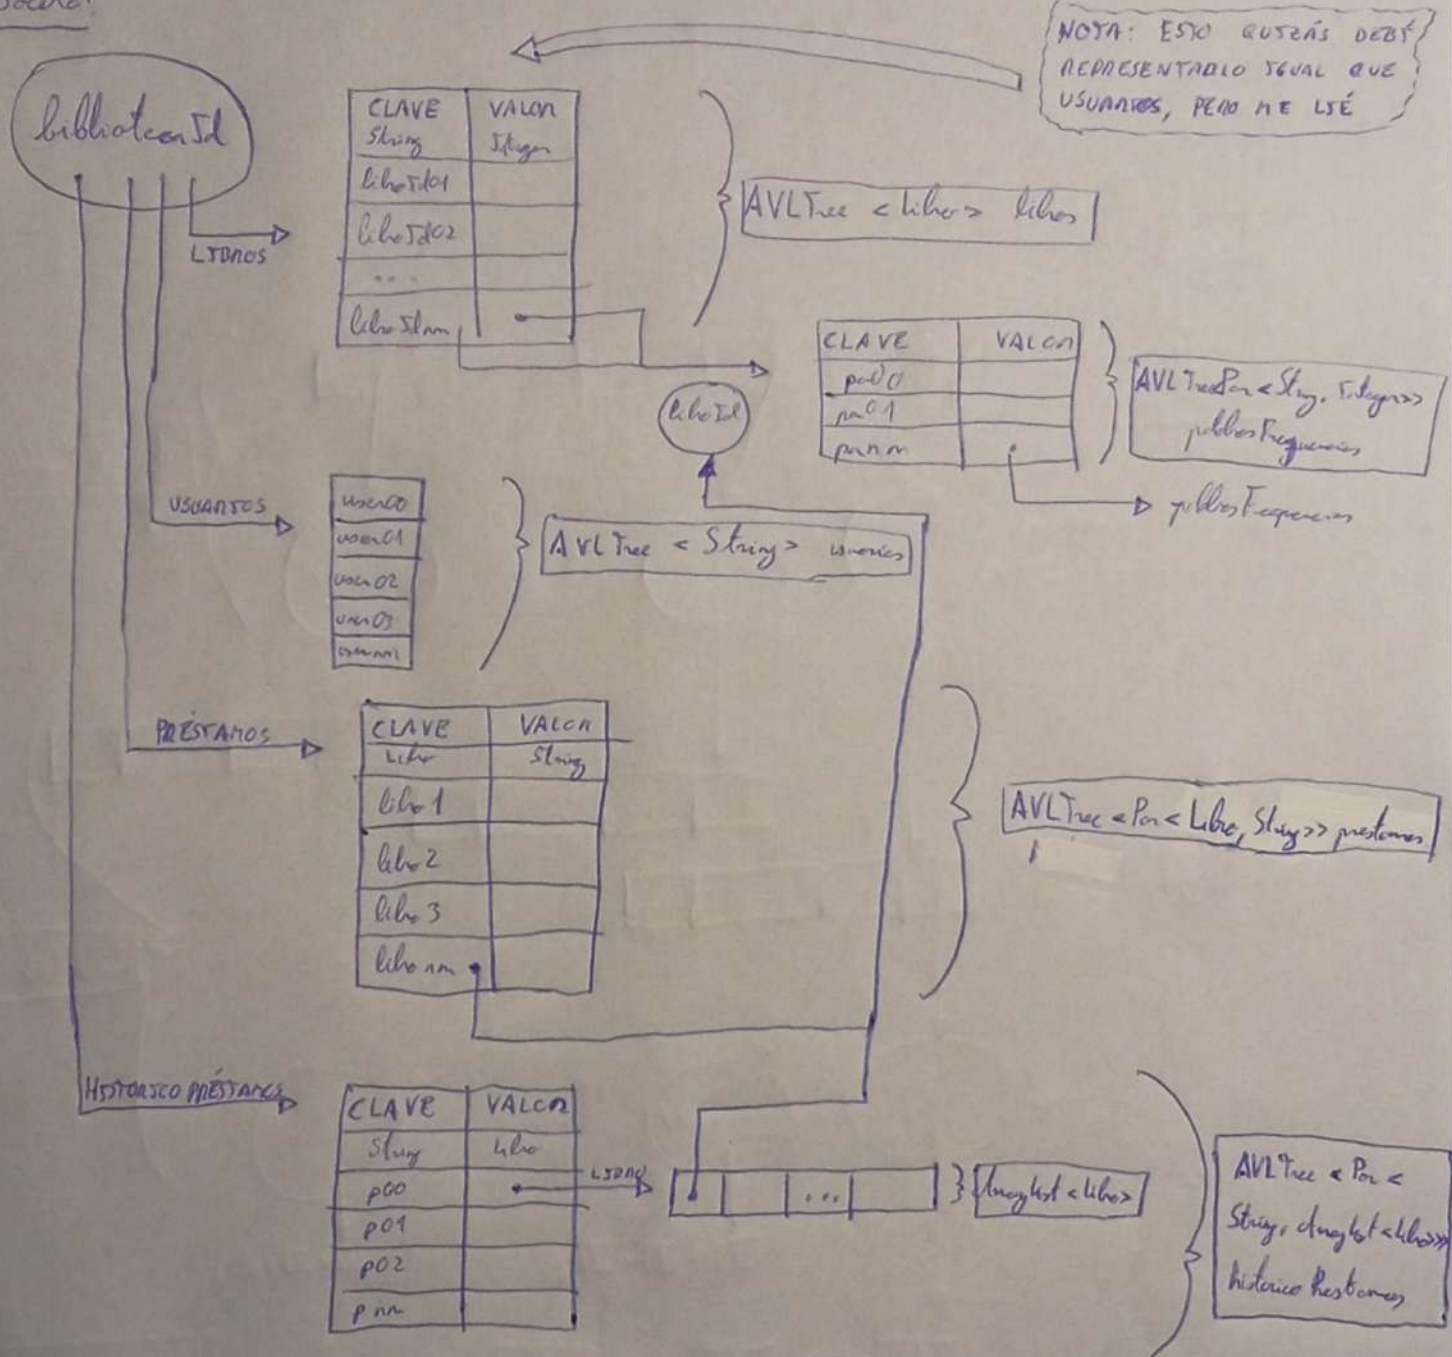 NOTA: ESTO QUIZÁS DEBÍ
REPRESENTARLO IGUAL QUE
USUARIOS, PERO ME LIÉ
bibliotecaId
CLAVE VALOR
String Integer
libroId01
libroId02
...
libroIdnn
AVLTree <Libro> libros
LIBROS
CLAVE VALOR
pal00
pal01
palnn
AVLTree<Par<String, Integer>>
palabrasFrequencias
palabrasFrequencias
libroId
USUARIOS
user00
user01
user02
user03
usernn
AVLTree < String > usuarios
PRÉSTAMOS
CLAVE VALOR
Libro String
libro1
libro2
libro3
libronn
AVLTree <Par< Libro, String>> prestamos
HISTORICO PRÉSTAMOS
CLAVE VALOR
String Libro
p00
p01
p02
pnn
LIBRO
...
ArrayList <Libro>
AVLTree <Par<
String, ArrayList <Libro>>>
historicoPrestamos